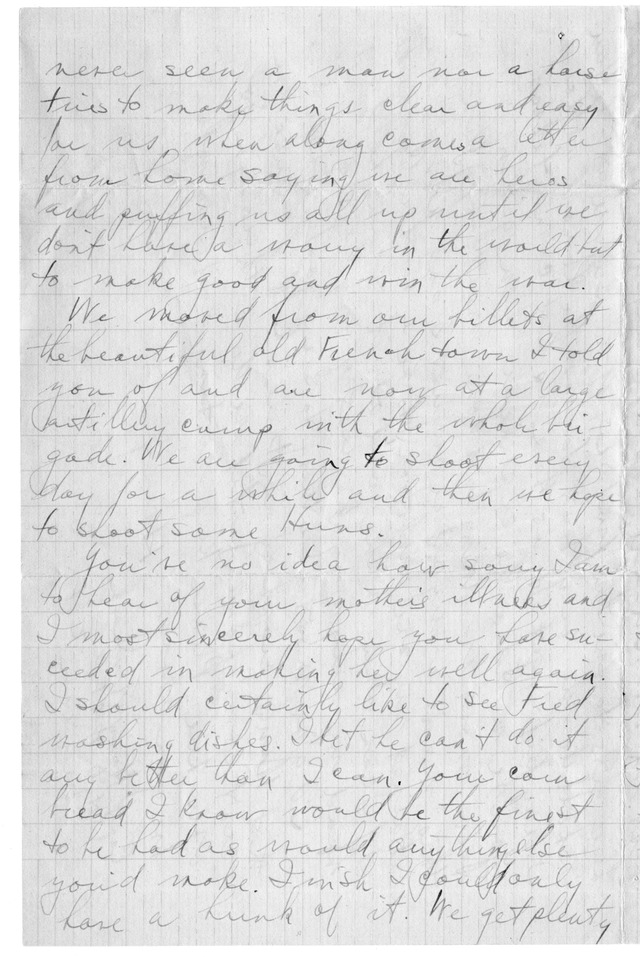 never seen a man nor a horse
tries to make things clear and easy
for us when along comes a letter
from home saying we are heros
and puffing us all up until we
don't have a worry in the world but
to make good and win the war.
We moved from our billets at
the beautiful old French town I told
you of and are now at a large
artillery camp with the whole bri-
gade. We are going to shoot every
day for a while and then we hope
to shoot some Huns.
You've no idea how sorry I am
to hear of your mother's illness and
I most sincerely hope you have su-
ceeded in making her well again.
I should certainly like to see Fred
washing dishes. I bet he can't do it
any better than I can. Your corn
bread I know would be the finest
to be had as would anything else
you'd make. I wish I could only
have a hunk of it. We get plenty